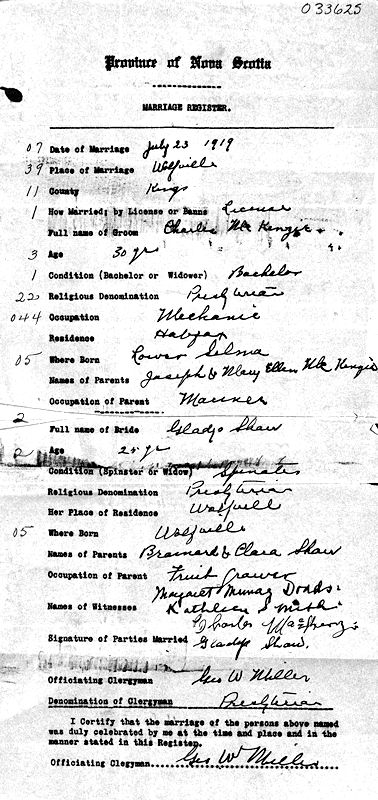 033625
Province of Nova Scotia
MARRIAGE REGISTER.
07 Date of Marriage July 23 1919
39 Place of Marriage Wolfville
11 County Kings
1 How Married; by License or Banns License
Full name of Groom Charlie McKenzie
3 Age 30 yr
1 Condition (Bachelor or Widower) Bachelor
220 Religious Denomination Presbyterian
044 Occupation Mechanic
Residence Halifax
05 Where Born Lower Selma
Names of Parents Joseph & Mary Ellen McKenzie
Occupation of Parent Mariner
2 Full name of Bride Gladys Shaw
2 Age 25 yr
Condition (Spinster or Widow) Spinster
Religious Denomination Presbyterian
Her Place of Residence Wolfville
05 Where Born Wolfville
Names of Parents Brainard & Clara Shaw
Occupation of Parent Fruit Grower
Margaret Murray Dodds
Names of Witnesses Kathleen S
Charles MacKenzie
Signature of Parties Married Gladys Shaw.
Officiating Clergyman Geo W Miller
Denomination of Clergyman Presbyterian
I Certify that the marriage of the persons above named
was duly celebrated by me at the time and place and in the
manner stated in this Register.
Officiating Clergyman Geo W Miller